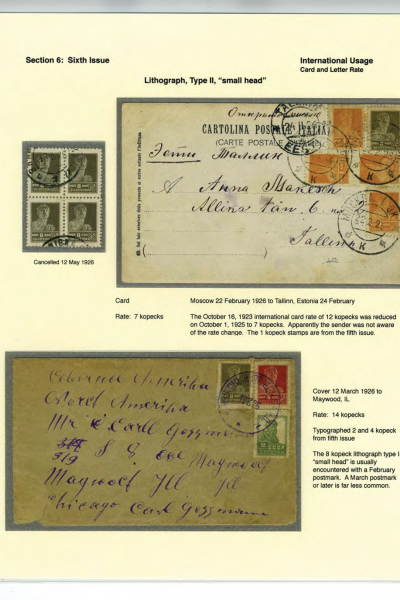 Section 6: Sixth Issue
International Usage
Card and Letter Rate
Lithograph, Type II, "small head"
Открытое письмо
CARTOLINA POSTALE ITALIA
(CARTE POSTALE
Эстия Таллин
A Anna
Allika tän 6
Tallinn
Cancelled 12 May 1926
Card
Moscow 22 February 1926 to Tallinn, Estonia 24 February
Rate: 7 kopecks
The October 16, 1923 international card rate of 12 kopecks was reduced
on October 1, 1925 to 7 kopecks. Apparently the sender was not aware
of the rate change. The 1 kopeck stamps are from the fifth issue.
Америка
Nord Amerika
Mr Carl
319 S
Maywood Ill
Chicago Carl
Cover 12 March 1926 to
Maywood, IL
Rate: 14 kopecks
Typographed 2 and 4 kopeck
from fifth issue
The 8 kopeck lithograph type I
"small head" is usually
encountered with a February
postmark. A March postmark
or later is far less common.